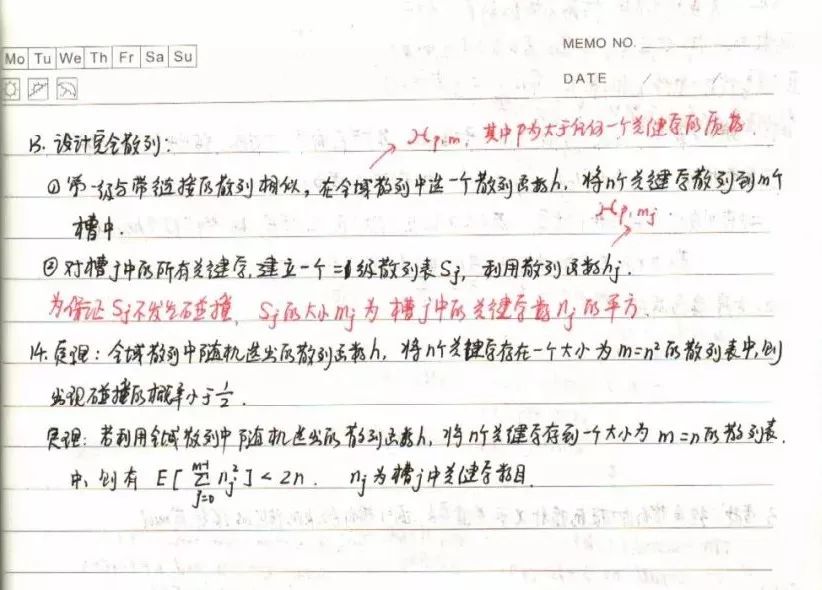 MEMO NO.
Mo Tu We Th Fr Sa Su
DATE / /
13. 设计完全散列:
ℋp,m, 其中p为大于任何一个关键字的质数
① 第一级与带链接的散列相似，在全域散列中选一个散列函数h，将n个关键字散列到m个
槽中.
ℋp,mj
② 对槽j中的所有关键字，建立一个二级散列表Sj，利用散列函数hj.
为保证Sj不发生碰撞，Sj的大小mj为槽j中的关键字数nj的平方.
14. 定理：全域散列中随机选出的散列函数h，将n个关键字存在一个大小为m=n²的散列表中,则
出现碰撞的概率小于1/2.
定理：若利用全域散列中随机选出的散列函数h，将n个关键字存到一个大小为m=n的散列表.
中，则有 E[∑_{j=0}^{m-1} nj²] < 2n. nj为槽j中关键字数目.